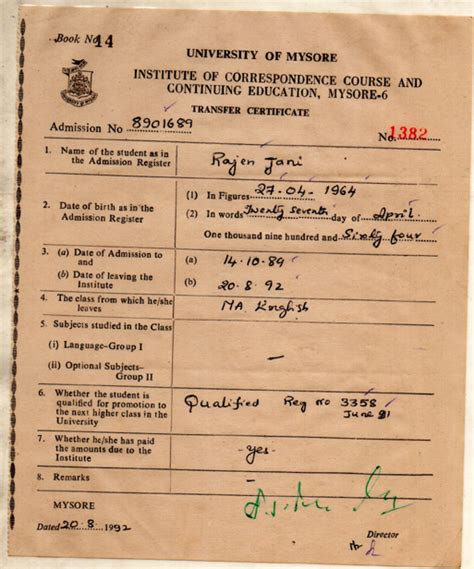 Book No. 14
UNIVERSITY OF MYSORE
INSTITUTE OF CORRESPONDENCE COURSE AND
CONTINUING EDUCATION, MYSORE-6
TRANSFER CERTIFICATE
Admission No 8901689
No. 1382
1. Name of the student as in the Admission Register
Rajen Jani
2. Date of birth as in the Admission Register
(1) In Figures 27-04-1964
(2) In words Twenty seventh day of April
One thousand nine hundred and Sixty four
3. (a) Date of Admission to and
(a) 14.10.89
(b) Date of leaving the Institute
(b) 20.8.92
4. The class from which he/she leaves
MA. English
5. Subjects studied in the Class
(i) Language-Group I
(ii) Optional Subjects-Group II
—
6. Whether the student is qualified for promotion to the next higher class in the University
Qualified Reg no 3358
June 91
7. Whether he/she has paid the amounts due to the Institute
-yes-
8. Remarks
—
MYSORE
Dated 20.8.1992
Director